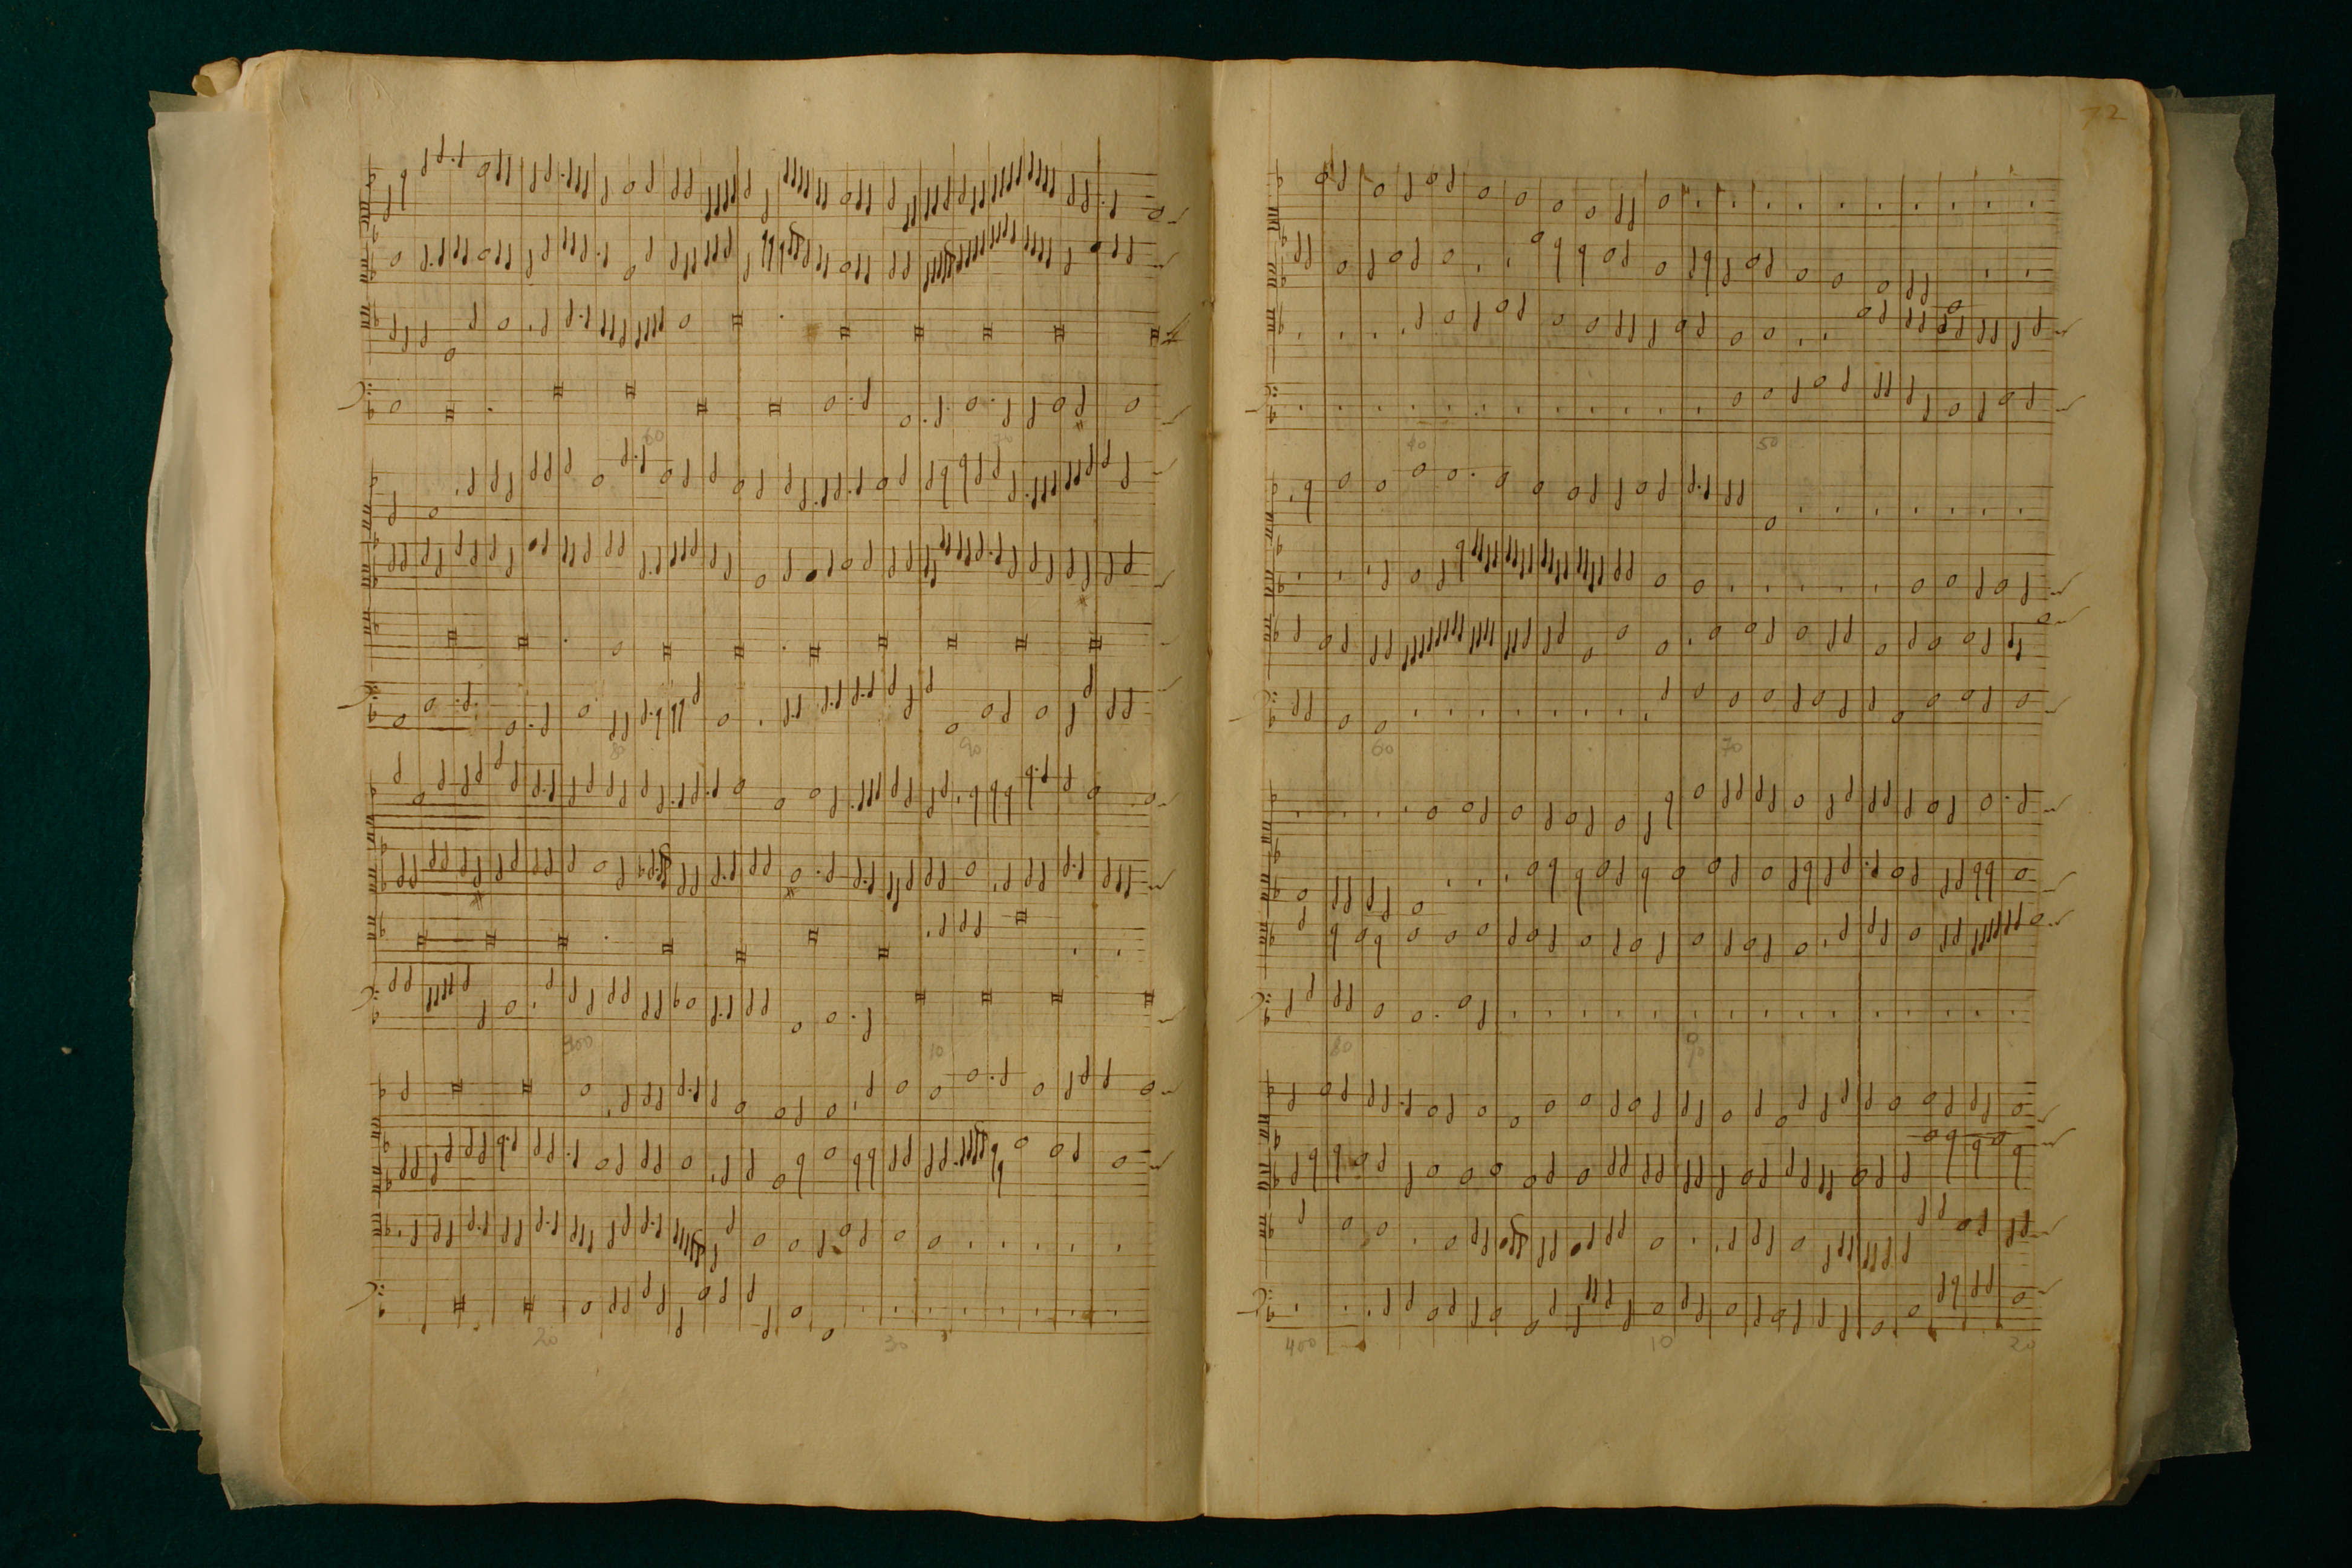 60 70
80 90
300 10
20 30
72
40 50
60 70
80 90
400 10 20